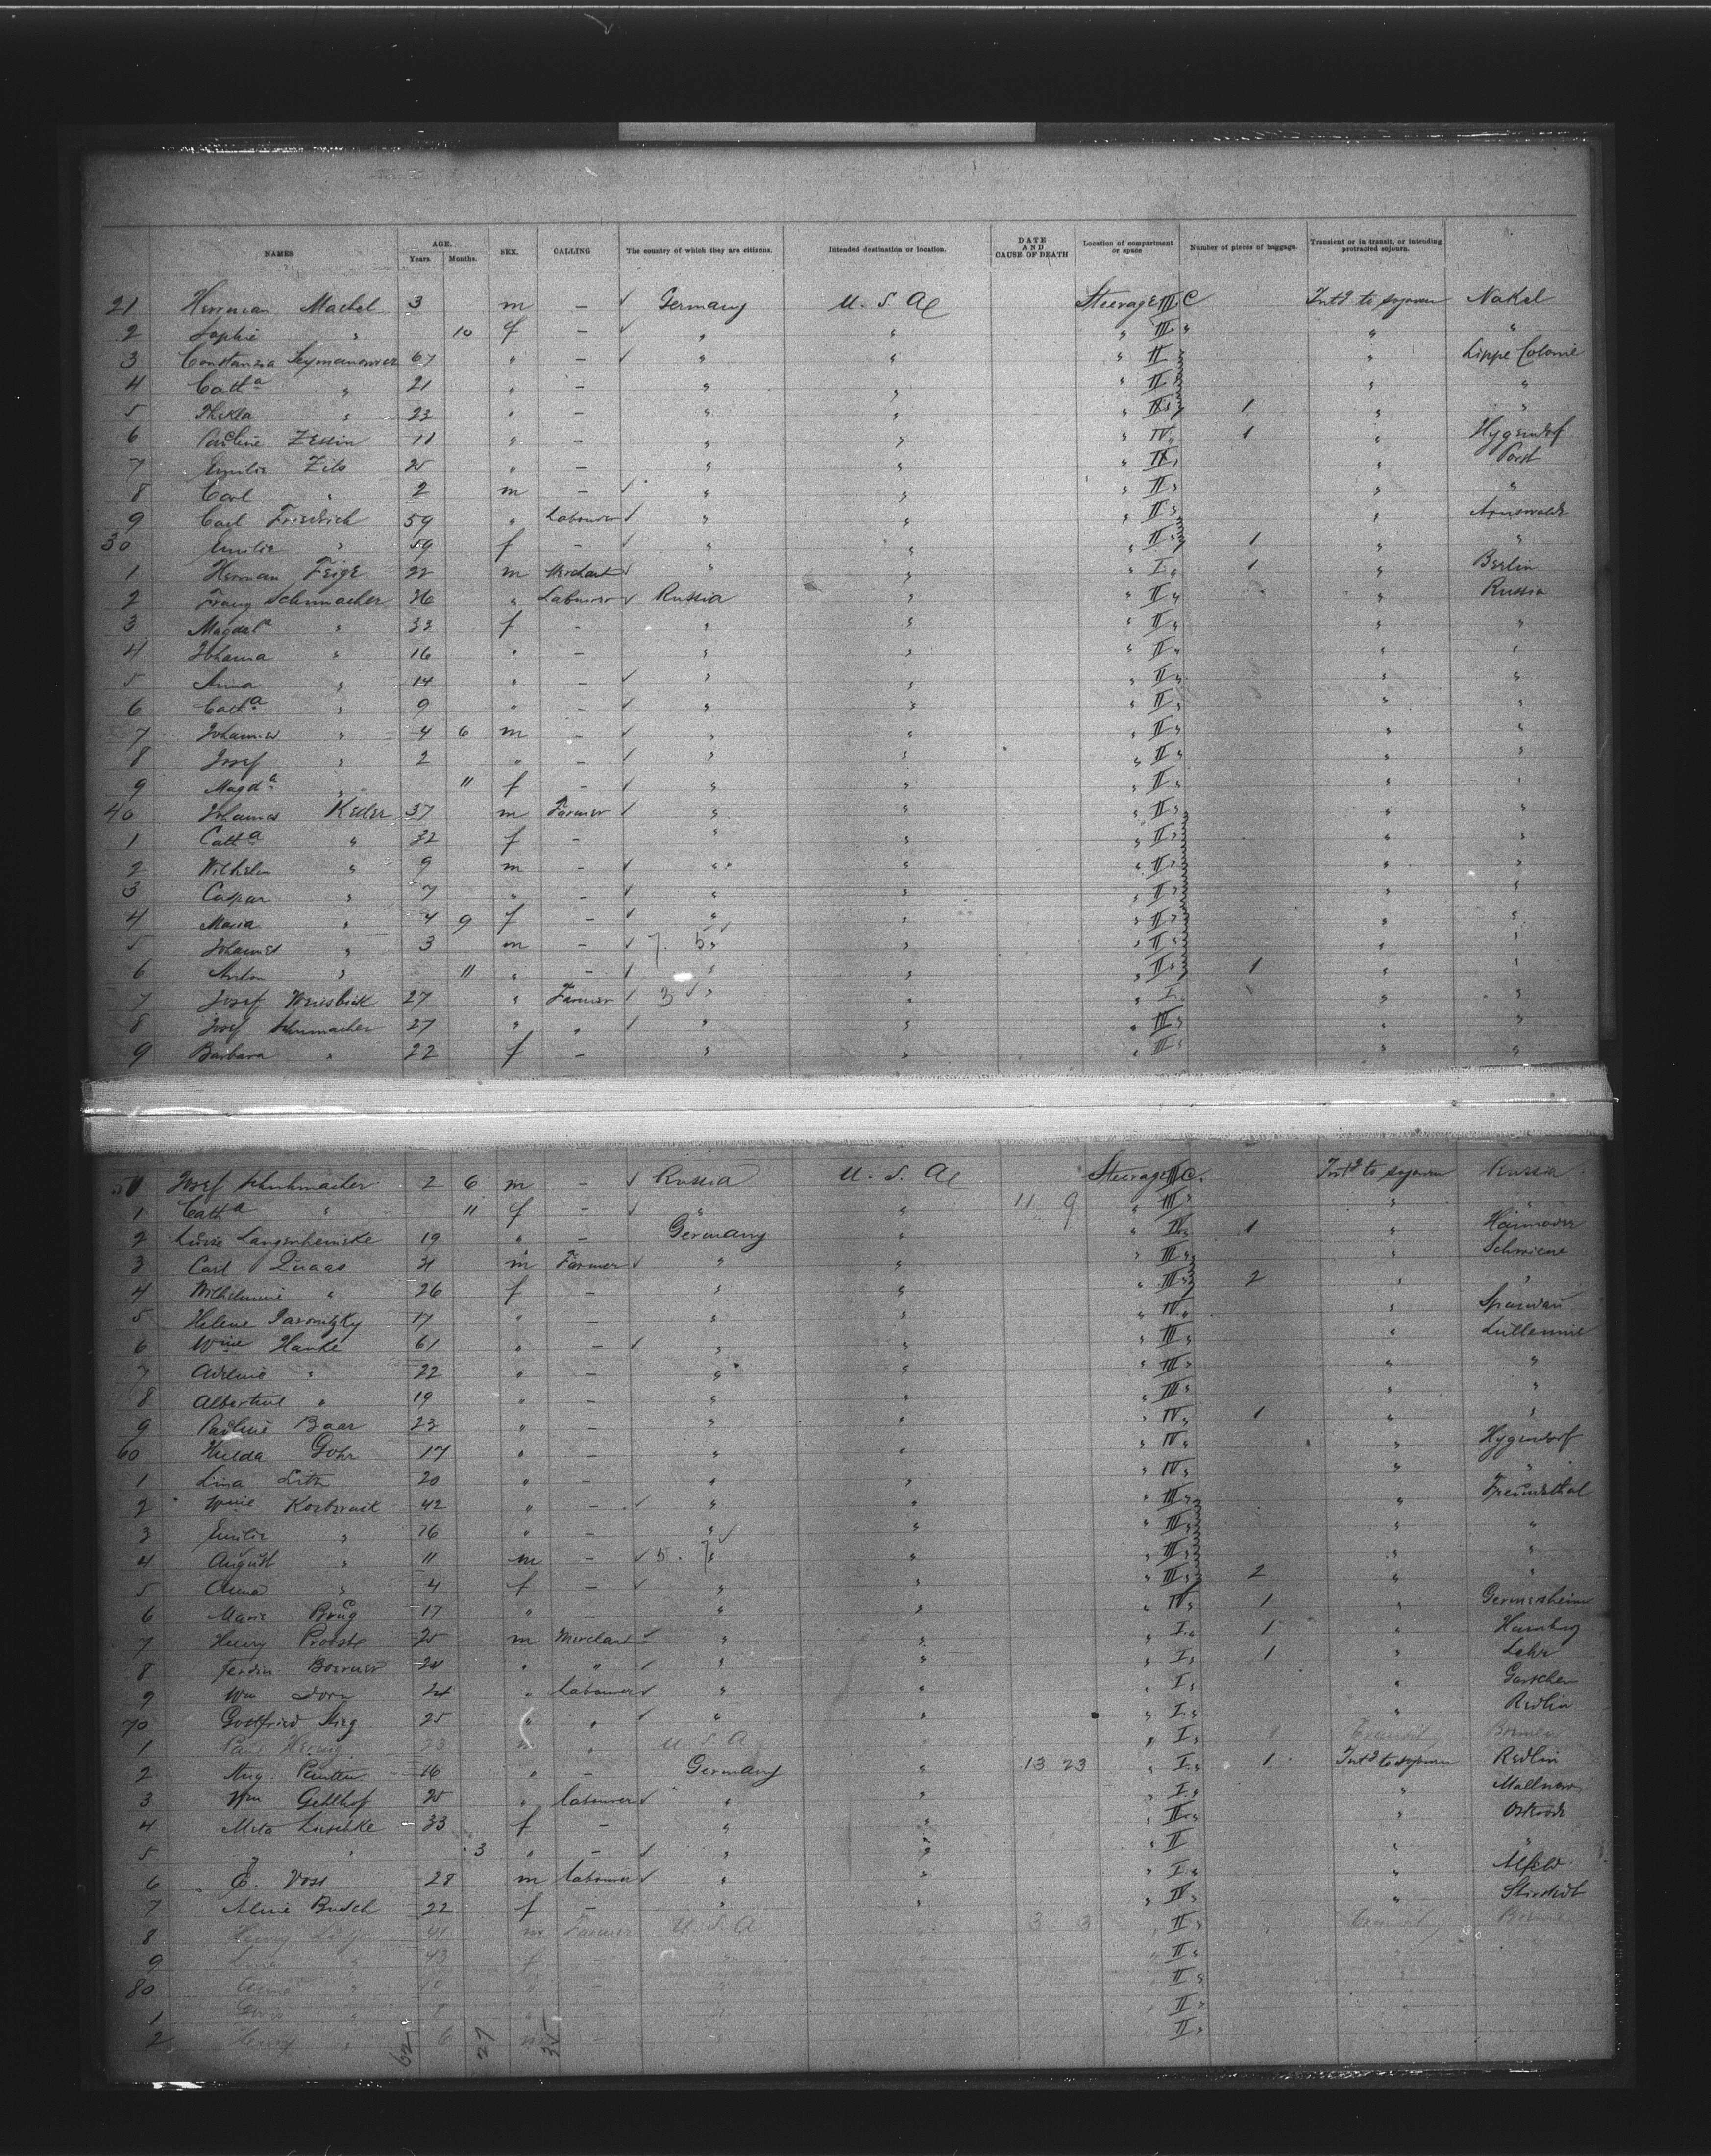 NAMES AGE. Years. Months. SEX. CALLING The country of which they are citizens. Intended destination or location. DATE AND CAUSE OF DEATH Location of compartment or space Number of pieces of baggage. Transient or in transit, or intending protracted sojourn.
21 Herrman Machel 3 m – ✓ Germany U. S. A Steerage III C Intd to sojourn Nakel
2 Sophie " 10 f – ✓ " " " III " " "
3 Constanzia 67 " – ✓ " " " II " " Lippe Colonie
4 Catha " 21 " – " " " II " " "
5 Thekla " 23 " – " " " II " 1 " "
6 Pauline Zessin 11 " – " " " IV " 1 "
7 Emilie Zils 25 " – " " " II " "
8 Carl " 2 m – ✓ " " " II " " "
9 Carl Friedrich 59 " Labourer ✓ " " " II " " Arnswalde
30 Emilie " 59 f – ✓ " " " II " 1 " "
1 Herman Feige 22 m Merchant ✓ " " " I " 1 " Berlin
2 Franz Schumacher 36 " Labourer ✓ Russia " " II " " Russia
3 Magdala " 33 f – " " " II " " "
4 Johanna " 16 " – " " " II " " "
5 Anna " 14 " – ✓ " " " II " " "
6 Catha " 9 " – ✓ " " " II " " "
7 Johannes " 4 6 m – ✓ " " " II " " "
8 Josef " 2 " – ✓ " " " II " " "
9 Magda " 11 f – ✓ " " " II " " "
40 Johannes Keller 37 m Farmer ✓ " " " II " " "
1 Catha " 32 f – " " " II " " "
2 Wilhelm " 9 m – ✓ " " " II " " "
3 Caspar " 7 " – ✓ " " " II " " "
4 Maria " 4 9 f – ✓ " " " II " " "
5 Johannes " 3 m – ✓ 7. 5 " " " II " " "
6 Anton " 11 " – ✓ " " " II " 1 " "
7 Josef 27 " Farmer ✓ 3 ✓ " " " I " " "
8 Josef Schumacher 27 " " ✓ " " " III " " "
9 Barbara " 22 f – " " " III " " "
Josef Schuhmacher 2 6 m – ✓ Russia U. S. A Steerage III C. Intd to sojourn Russia
1 Catha " 11 f – ✓ " " 11 9 " III " " "
2 Langenheinicke 19 " – Germany " " IV " 1 " Hannover
3 Carl Quaas 31 m Farmer ✓ " " " III " "
4 Wilhelmine " 26 f – " " " III " 2 " "
5 Helene 17 " – " " " IV " "
6 Wine Hanke 61 " – ✓ " " " III " "
7 Adeline " 22 " – " " " III " " "
8 Albertine " 19 " – " " " III " " "
9 Pauline Baar 23 " – " " " IV " 1 " "
60 Hulda Gohr 17 " – " " " IV " "
1 Lina 20 " – " " " IV " " "
2 Wine 42 " – ✓ " " " III " "
3 Emilie " 16 " – " ✓ " " III " " "
4 August " 11 m – ✓ 5. 7 " " " III " " "
5 Anna " 4 f – ✓ " " " III " 2 " "
6 Marie Brug 17 " – " " " IV " 1 " Germersheim
7 Henry Probste 25 m Merchant ✓ " " " I " 1 " Hamburg
8 Ferdin. Boerner 24 " " ✓ " " " I " 1 " Lahr
9 Wm Dorn 24 " Labourer ✓ " " " I " "
70 Gottfried 25 " " ✓ " " " I " " Redlin
1 Paul 23 " " U. S. A " " I " Transit Bremen
2 Aug. 16 " – Germany " 13 23 " I " 1 Intd to sojourn Redlin
3 Wm Gehlhof 25 " labourer ✓ " " " I " "
4 Meta 33 f – " " " II " " Osterode
5 " " 3 " – ✓ " " " II " "
6 C. Voss 28 m labourer ✓ " " " I " " Alfeld
7 Aline Busch 22 f – " " " IV " "
8 Henry 41 m Farmer U. S. A 3 3 " II " Transit Bremen
9 " 43 f – " II "
80 Anna " 10 " II "
1 " 8 " II "
2 Henry " 6 m – " II "
62 27 35